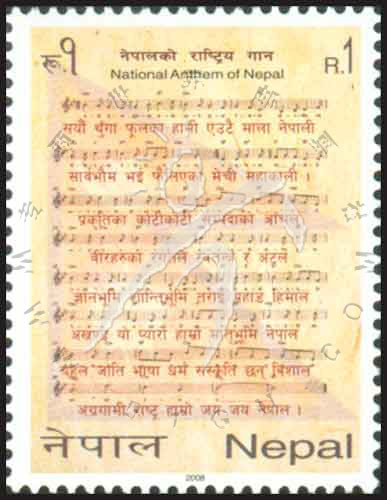 रू.१ नेपालको राष्ट्रिय गान R.1
National Anthem of Nepal
सयौं थुँगा फूलका हामी एउटै माला नेपाली
सार्वभौम भई फैलिएका मेची महाकाली ।
प्रकृतिका कोटीकोटी सम्पदाको आँचल
वीरहरूका रगतले स्वतन्त्र र अटल
ज्ञानभूमि शान्तिभूमि तराई पहाड हिमाल
अखण्ड यो प्यारो हाम्रो मातृभूमि नेपाल
बहुल जाति भाषा धर्म संस्कृति छन् विशाल
अग्रगामी राष्ट्र हाम्रो जय जय नेपाल ।
नेपाल Nepal
2008